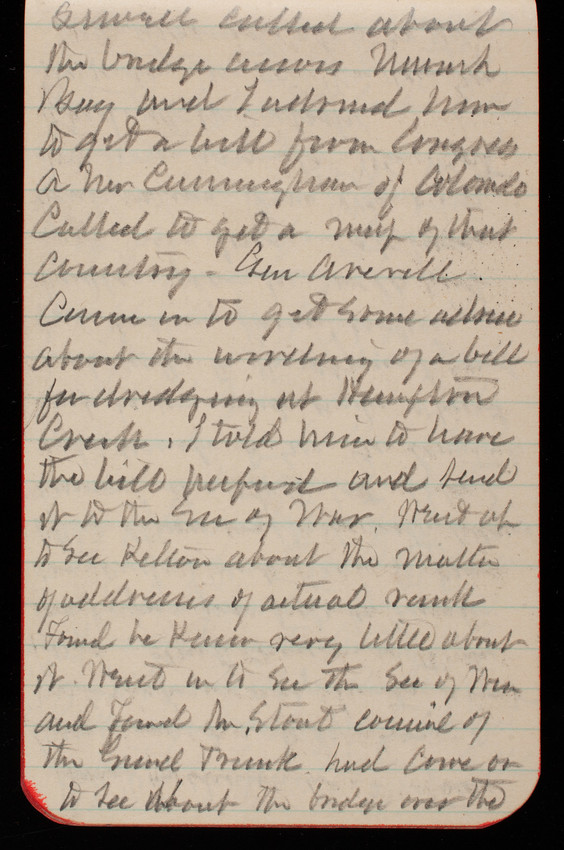 Sewell called about
the bridge across Newark
Bay and I advised him
to get a bill from Congress
A Mr Cunningham of Colorado
Called to get a map of that
country - Gen Averell.
Came in to get some advice
about the wording of a bill
for dredging at Hampton
Creek. I told him to have
the bill prepared and send
it to the Sec of War. Went up
to see Kelton about the matter
of addresses of actual rank
Found he knew very little about
it. Went in to see the Sec of War
and found Mr. Stout counsel of
the Grand Trunk had come on
to see about the bridge over the